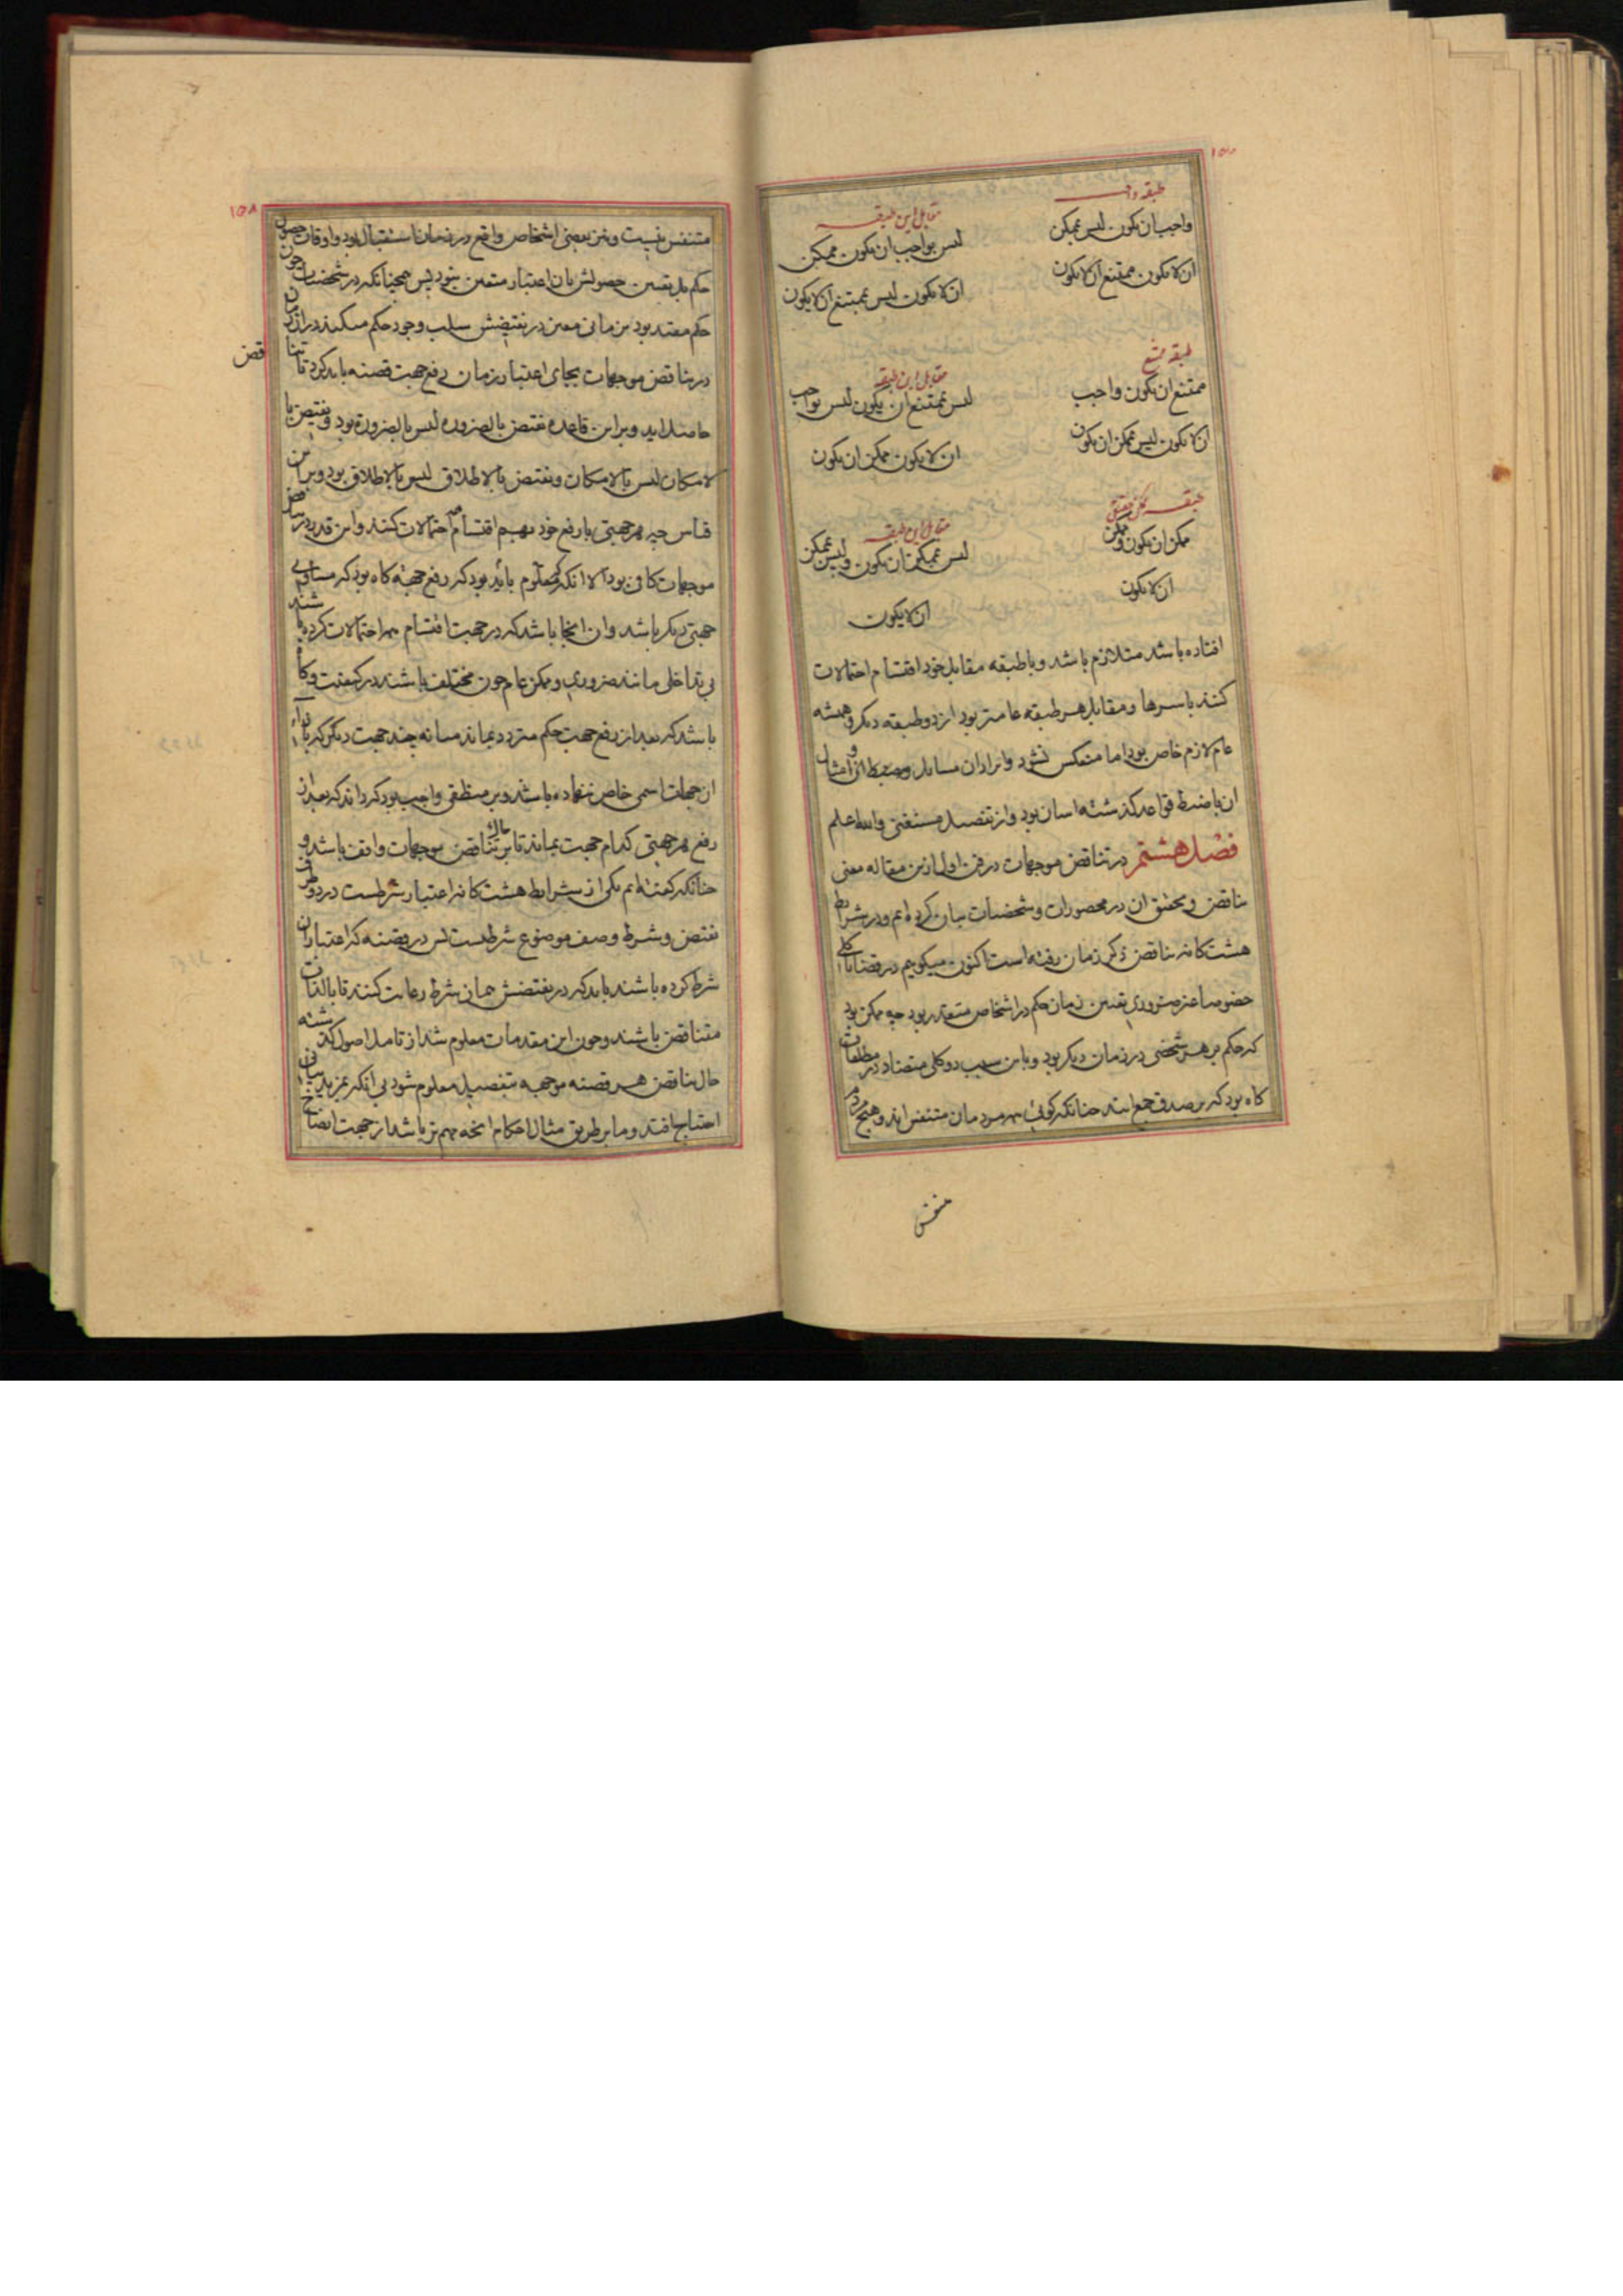 طبقه واجب
مقابل این طبقه
واجب ان یکون لیس بممکن
لیس بواجب ان یکون ممکن
ان لا یکون ممتنع ان لا یکون
ان لا یکون لیس بممتنع ان لا یکون
طبقه ممتنع
مقابل این طبقه
ممتنع ان یکون واجب
لیس بممتنع ان یکون لیس بواجب
ان لا یکون لیس بممکن ان یکون
ان لا یکون ممکن ان یکون
طبقه ممکن حقیقی
مقابل این طبقه
ممکن ان یکون وممکن
لیس بممکن ان یکون ولیس بممکن
ان لا یکون
ان لا یکون
افتاده باشد متلازم باشد و با طبقه مقابل خود اقتسام احتمالات
کنند باسرها و مقابل هر طبقه عامتر بود از دو طبقه دیکر و همیشه
عام لازم خاص بود اما منعکس نشود و ایراد ان مسایل و ضبط امثال
ان با ضبط قواعد کذشته اسان بود و از تفصیل مستغنی والله اعلم
فصل هشتم در تناقض موجهات در فن اول ازین مقاله معنی
تناقض و تحقیق ان در محصورات و شخصیات بیان کرده ایم و در شرایط
هشت کانه تناقض ذکر زمان رفته است اکنون میکوییم در قضایا کلی
خصوصا غیر ضروری تعیین زمان حکم در اشخاص متعذر بود چه ممکن بود
که حکم بر هر شخصی در زمان دیکر بود و باین سبب دو کلی متضاد در مطلقات
کاه بود که بر صدق جمع ایند چنانکه کوئی همه مردمان متنفس اند و هیچ مردم
متنفس
۱۵۸
متنفس نیست و نیز بعضی اشخاص واقع در زمان استقبال بود و اوقات حصول
حکم بل تعیین حصولش بان اعتبار متعین نبود پس همچنانکه در شخصیات چون
حکم مقید بود بزمانی معین در نقیضش سلب وجود حکم میکنند در ان زمان
در تناقض موجهات بجای اعتبار زمان رفع جهت قضیه باید کرد تا تناقض
حاصل اید و برین قاعده نقیض بالضروره لیس بالضروره بود و نقیض با
لامکان لیس بالامکان و نقیض بالاطلاق لیس بالاطلاق بود و برین
قیاس چه هر جهتی با رفع خود بهم اقتسام احتمالات کنند و این قدر در تناقض
موجهات کافی بود الا انکه معلوم باید بود که رفع جهت کاه بود که مساوی
جهتی دیکر باشد و ان انجا باشد که در جهت اقتسام همه احتمالات کرده باشند
بی تداخل مانند ضروری و ممکن عام چون مختلف باشند در کیفیت و کاه
باشد که بعد از رفع جهت حکم متردد بماند میانه چند جهت دیکر که بازاء
ان جهات اسمی خاص ننهاده باشند و بر منطقی واجب بود که داند که بعد از
رفع هر جهتی کدام جهت بماند تا بر تناقض موجهات واقف باشد و
چنانکه کفته ایم یکی از شرایط هشت کانه اعتبار شرطست در دو طرف
نقیض و شرط وصف موضوع شرطیست پس در قضیه که اعتبار ان
شرط کرده باشند باید که در نقیضش همان شرط رعایت کنند تا بالذات
متناقض باشند و چون این مقدمات معلوم شد از تامل اصول کذشته
حال تناقض هر قضیه موجهه بتفصیل معلوم شود بی انکه بمزید بیانی
احتیاج افتد و ما بر طریق مثال احکام انچه مهم تر باشد از جهت ایضاح